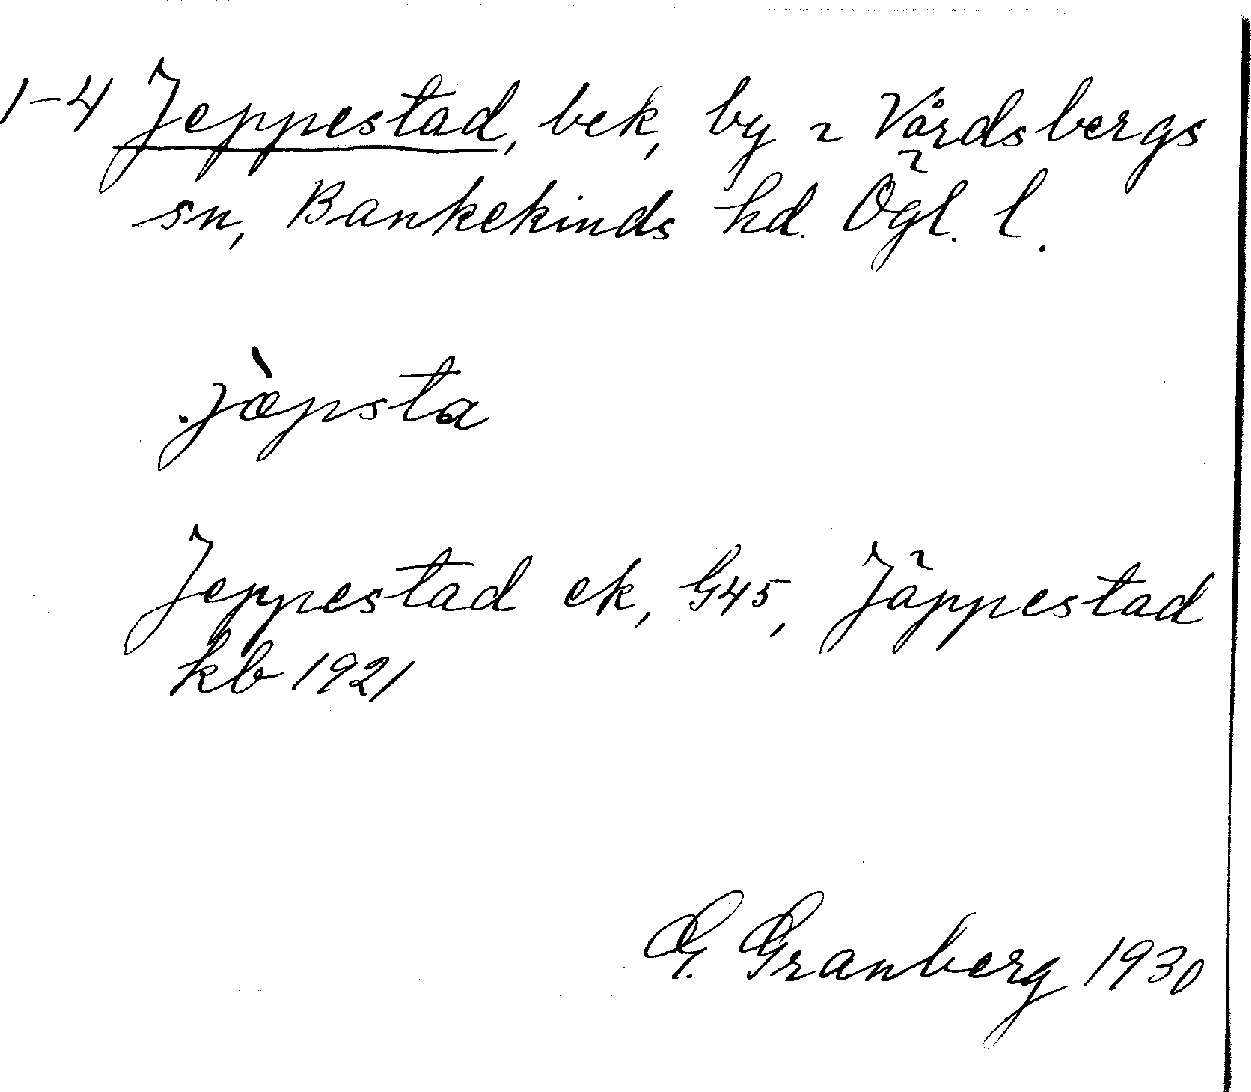 1-4 Jeppestad, bek, by i Vårdsbergs
sn, Bankekinds hd. Ögl. l.
jæ̀psta
Jeppestad ek, G45, Jäppestad
kb 1921
G. Granberg 1930